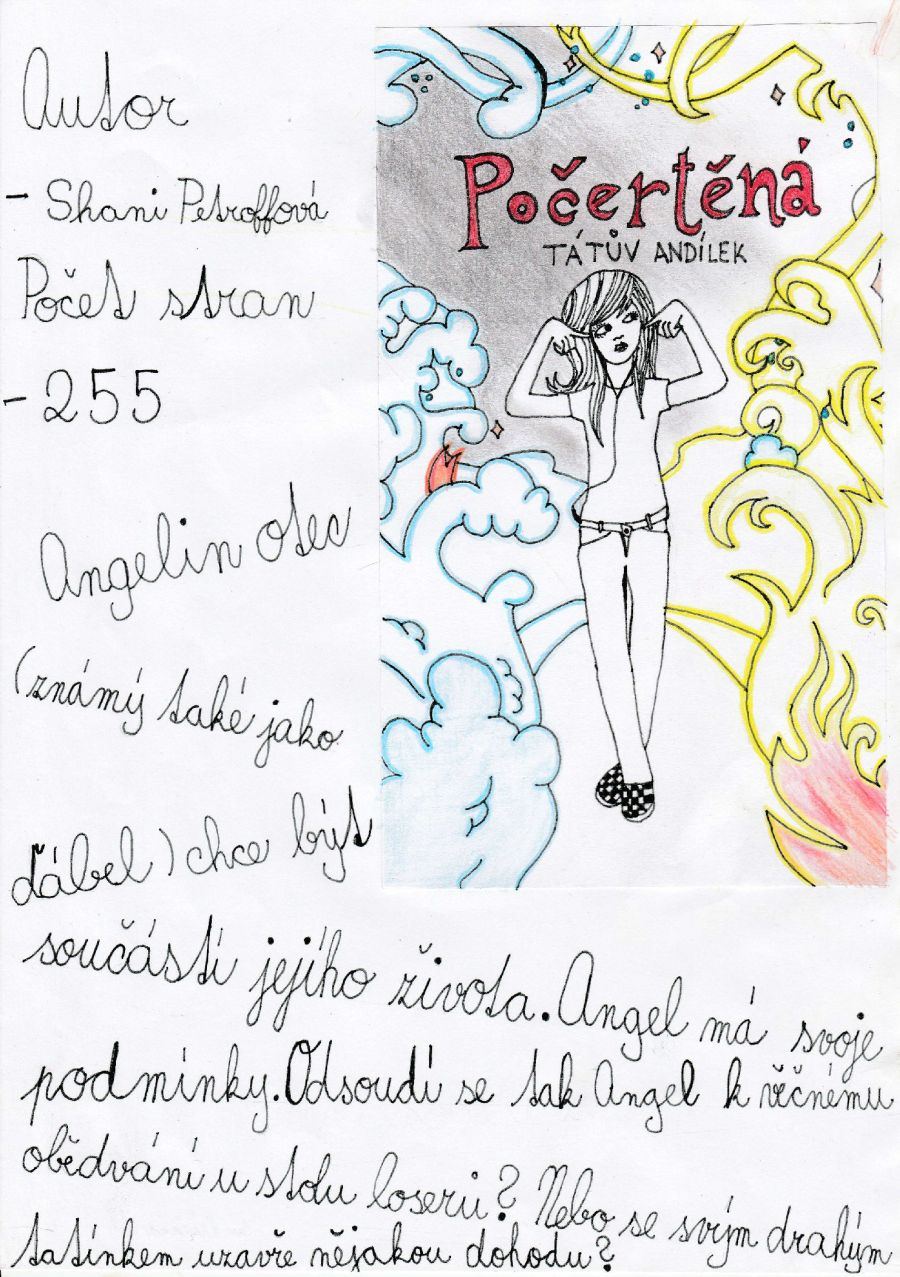 Autor
- Shani Petroffová
Počet stran
- 255
Počertěná
TÁTŮV ANDÍLEK
Angelin otec
(známý také jako
ďábel) chce být
součástí jejího života. Angel má svoje
podmínky. Odsoudí se tak Angel k věčnému
obědvání u stolu loserů? Nebo se svým drahým
tatínkem uzavře nějakou dohodu?